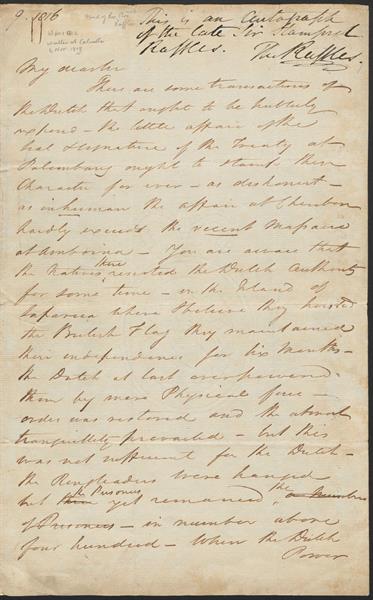 9. 1816
This is an Autograph
of the late Sir Stamford
Raffles. Thos Raffles.
My dearest
There are some transactions of
the Dutch that ought to be publicly
exposed - the little affair of the
seal & signature of the Treaty at
Palembang ought to stamp their
Character for ever - as dishonest -
as inhuman the affair at Cheribon
hardly exceeds the recent Massacre
at Amboina - You are aware that
the Natives there resisted the Dutch Authority
for some time - in the Island of
Saparua where I believe they hoisted
the British Flag they maintained
their independence for six Months -
the Dutch at last overpowered
them by mere Physical force -
order was restored and the utmost
tranquillity prevailed - but this
was not sufficient for the Dutch -
the Ringleaders were hanged
but the Prisoners yet remained the
of Prisoners - in number above
four hundred - When the Dutch
Power